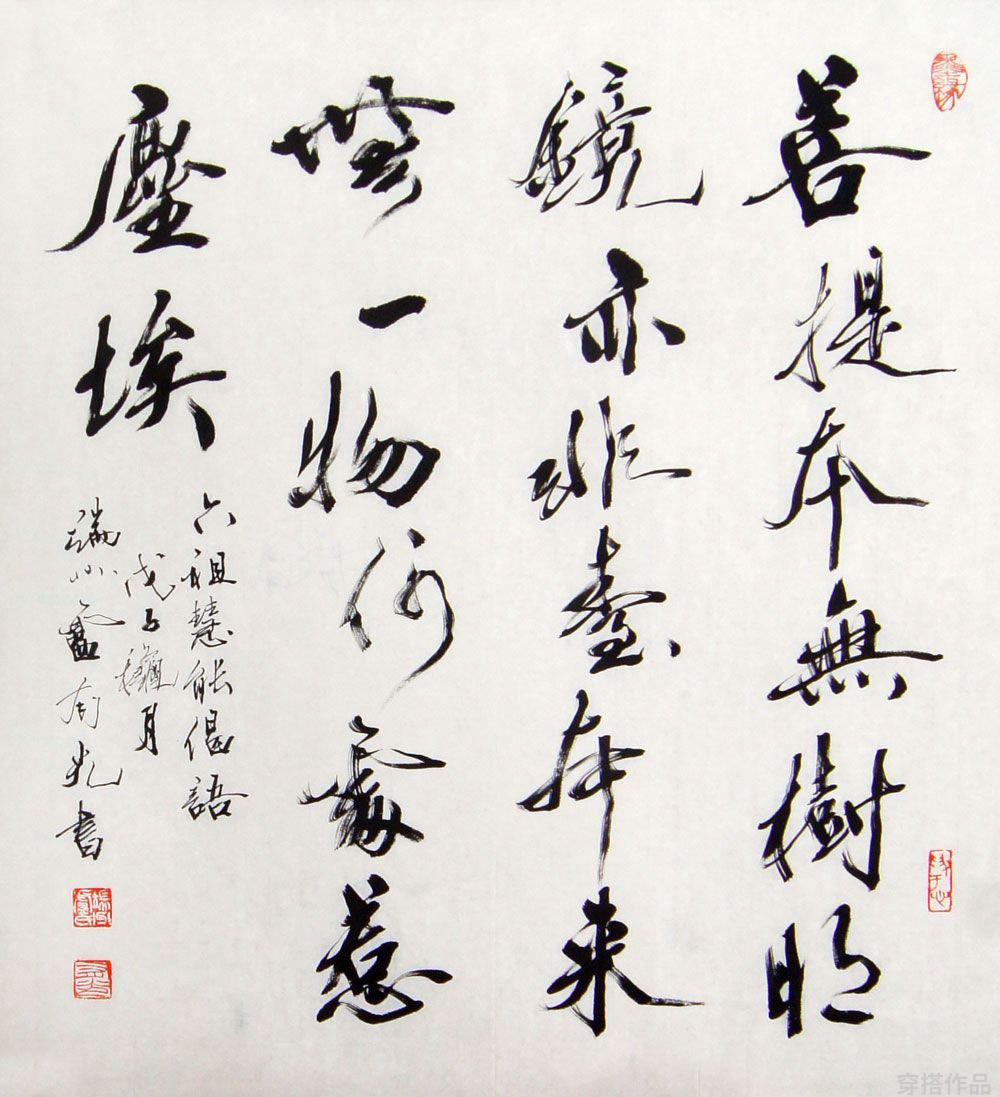 菩提本無樹明
鏡亦非臺本来
無一物何處惹
塵埃
六祖慧能偈語
戊子穐月
端州盧有光書
穿搭作品